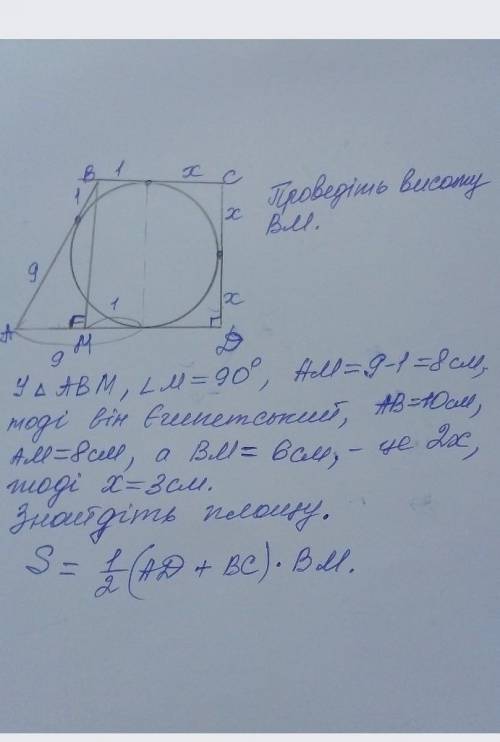 B 1 x C
1
x
9
1
x
A M D
9
Проведіть висоту
BM.
У △ ABM, ∠M = 90°, AM = 9-1 = 8 см,
тоді він Єгипетський, AB = 10 см,
AM = 8 см, а BM = 6 см, - це 2x,
тоді x = 3 см.
Знайдіть площу.
S = 1/2 (AD + BC) · BM.